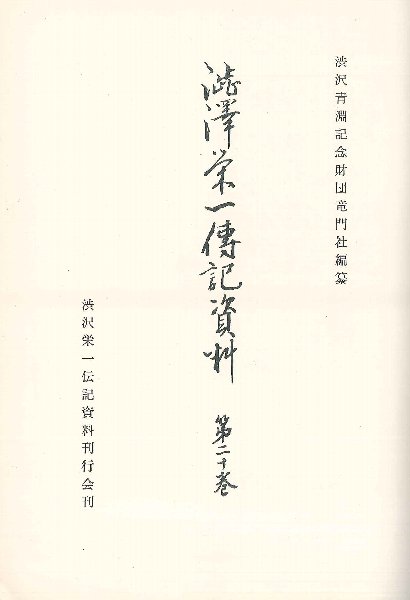 渋沢青淵記念財団竜門社編纂
澁澤栄一傳記資料 第二十巻
渋沢栄一伝記資料刊行会刊